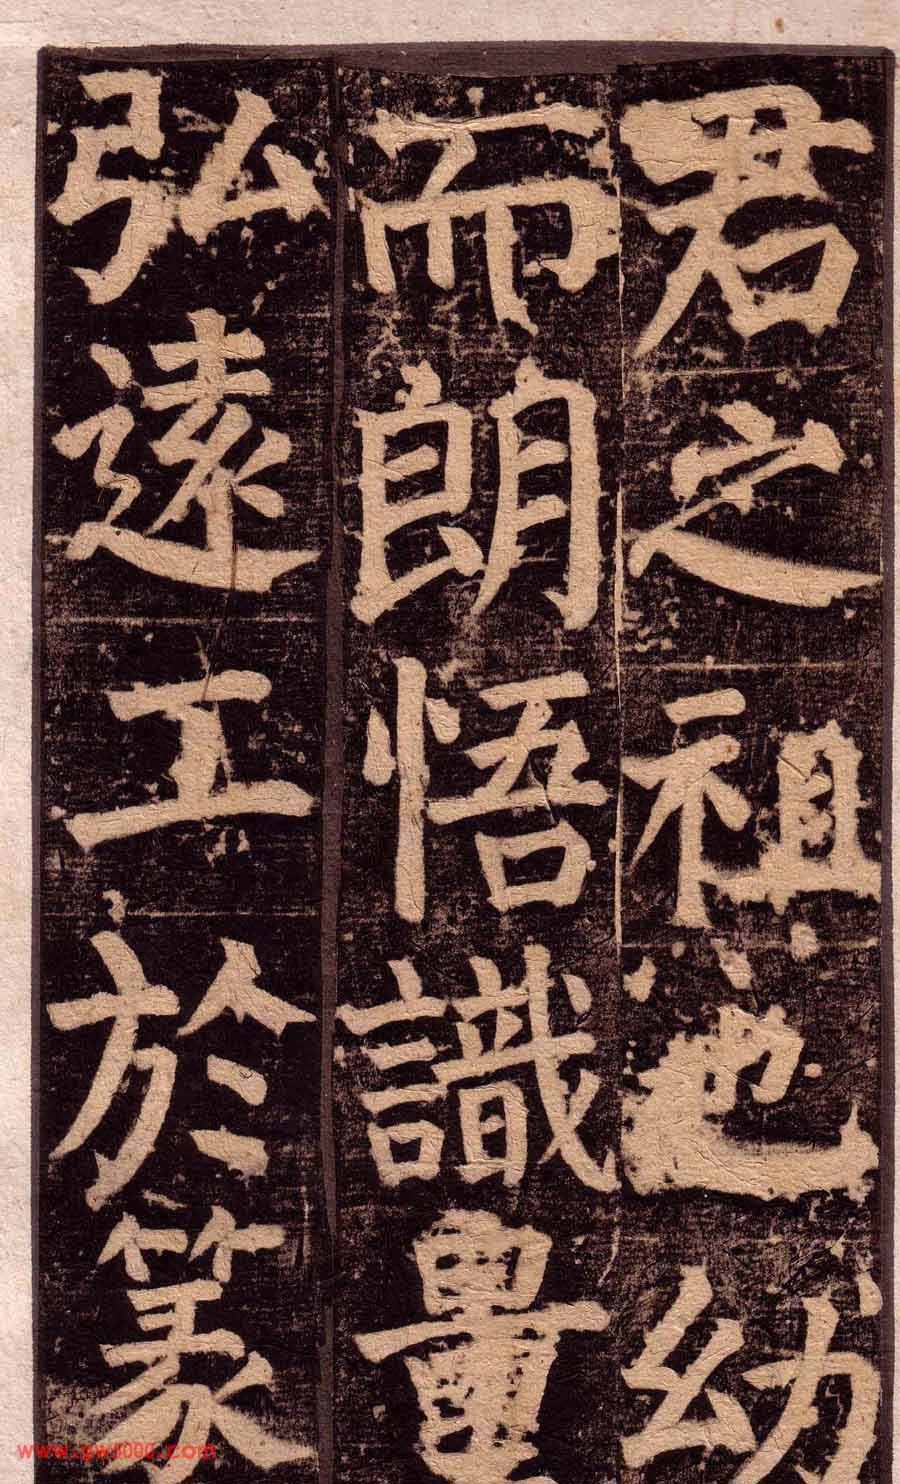 君之祖也幼
而朗悟識量
弘遠工於篆
www.gw8000.com